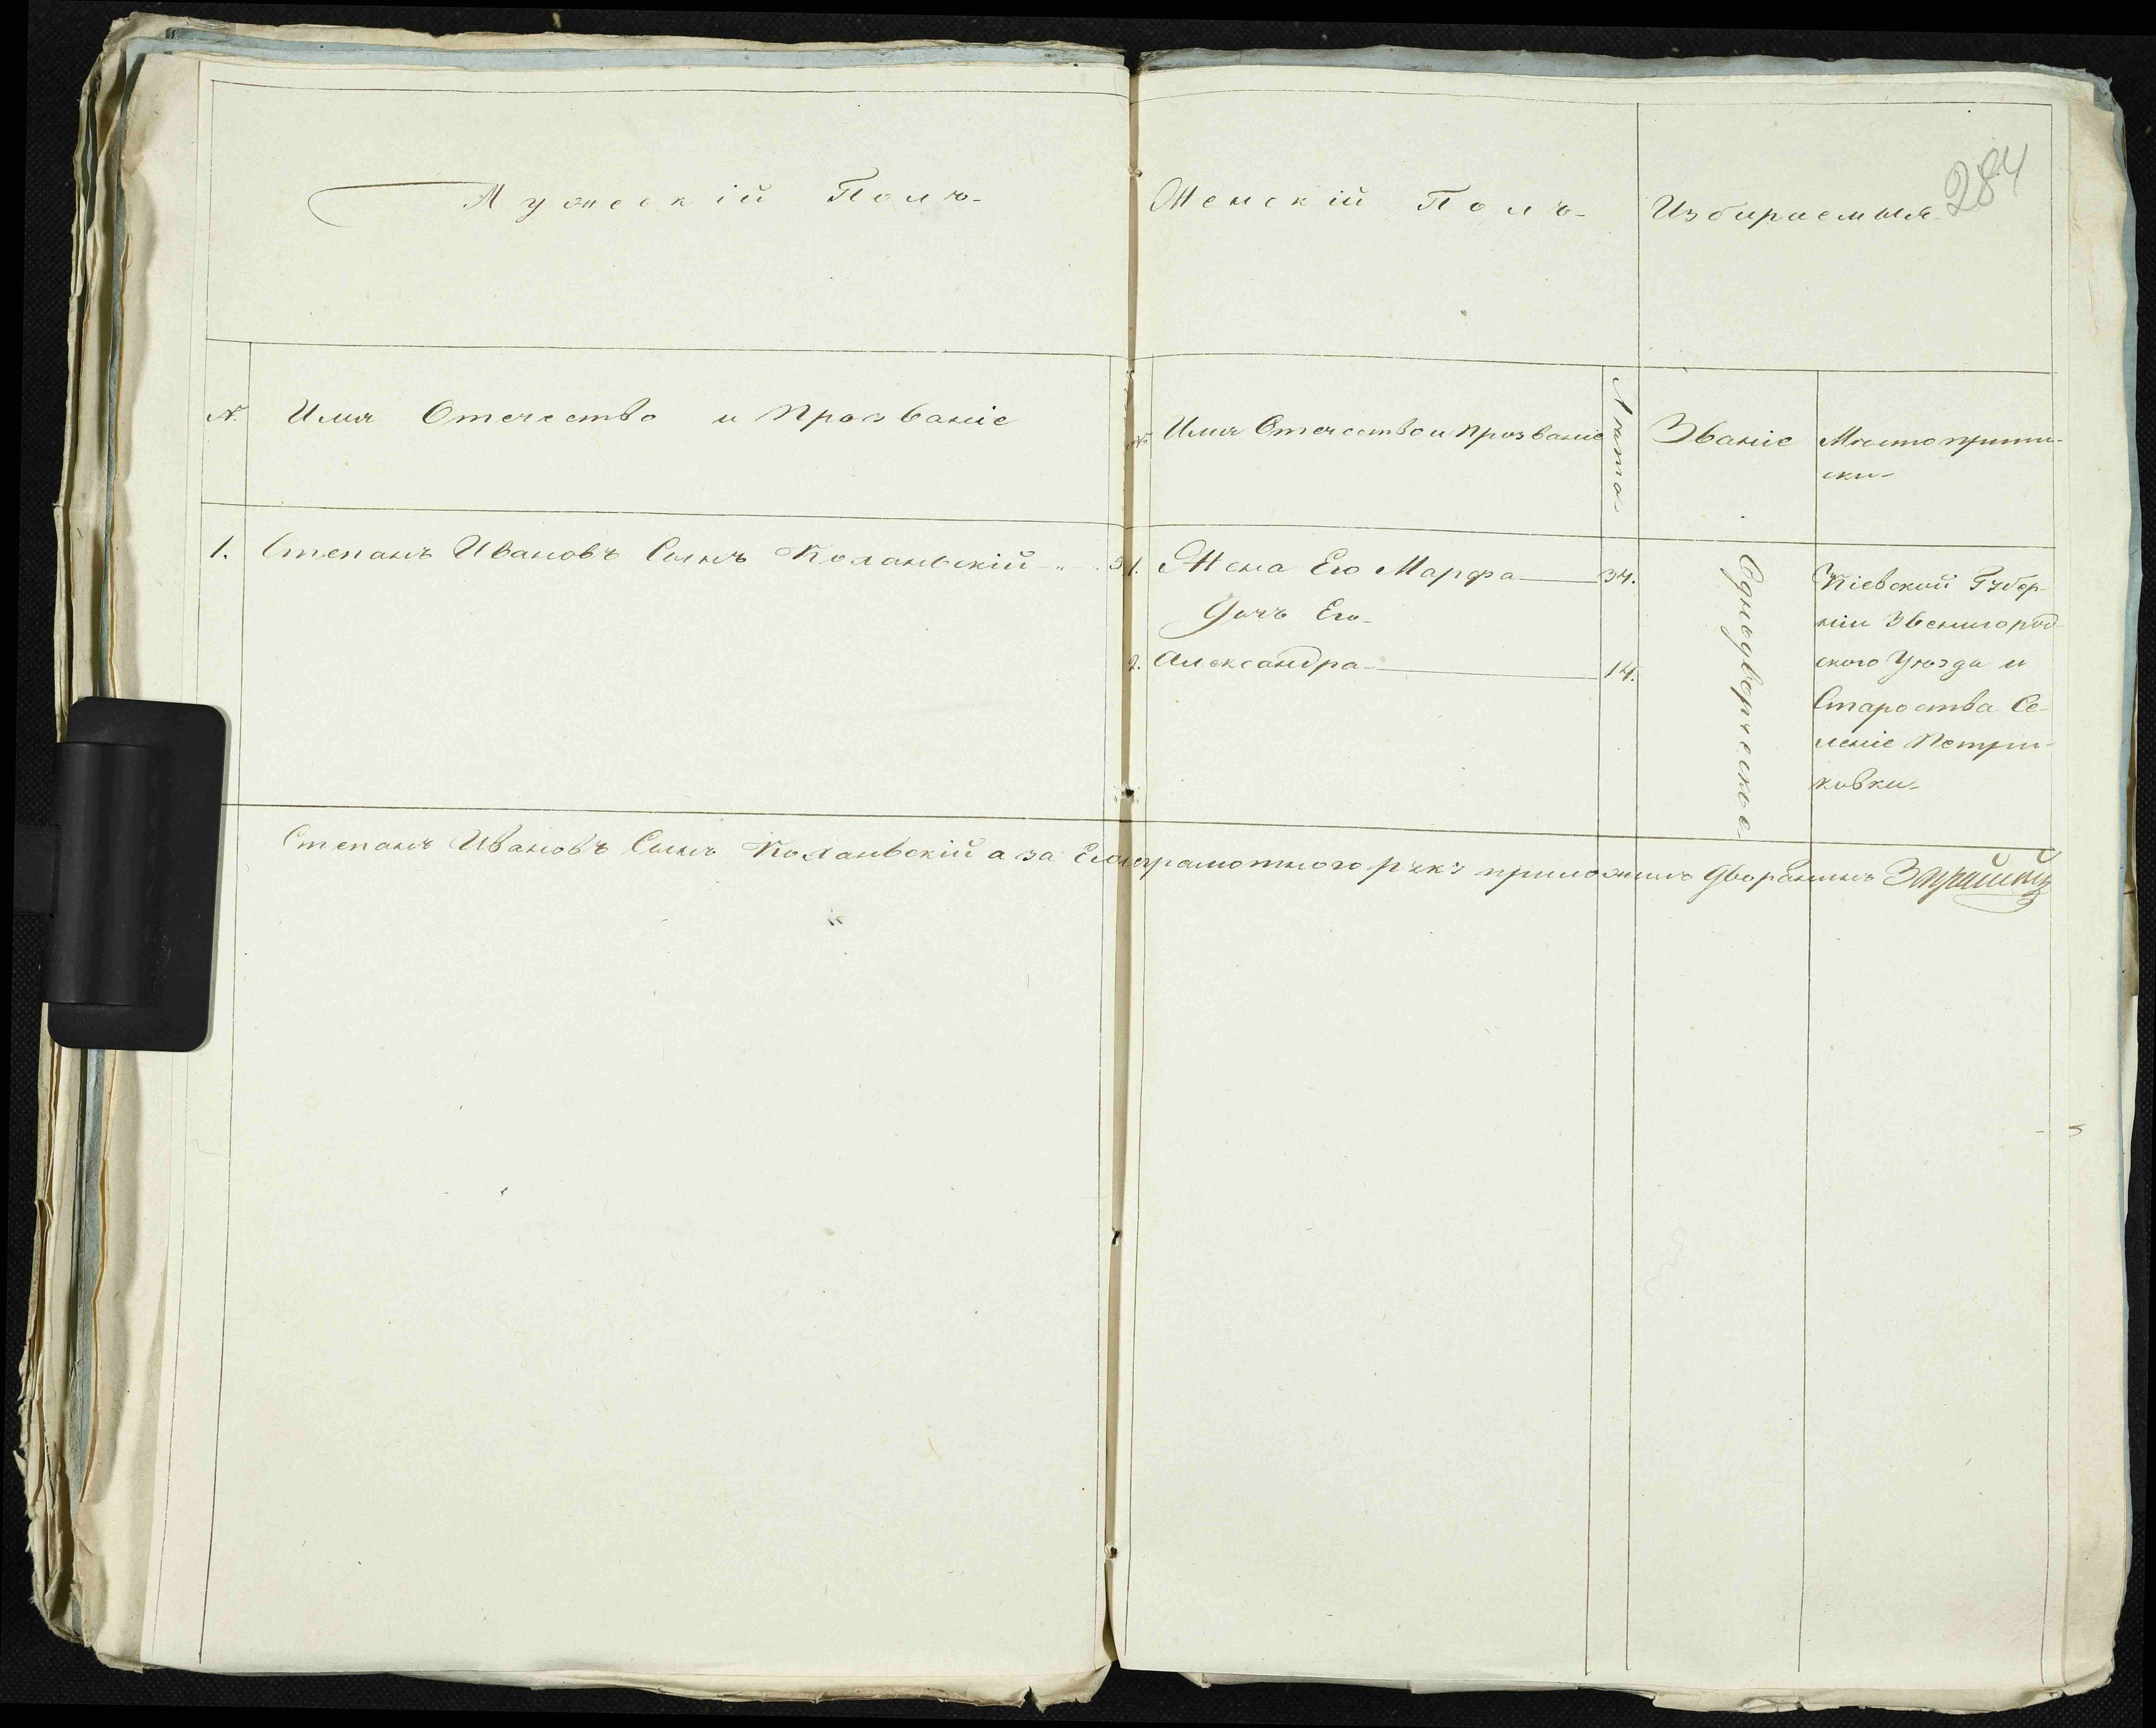 284
Мужескій Полъ
Женскій Полъ
Избираемыя
№ Имя Отечество и Прозваніе
№ Имя Отечество и Прозваніе
Лѣта
Званіе
Мѣсто припи-
ски
1. Степанъ Ивановъ Сынъ Коханьскій
1. Жена Его Марфа 34.
Дочь Его
2. Александра 14.
Однодворческое
Кіевской Губер-
ніи Звенигород
ского Уѣзда и
Староства Се-
леніе Петри-
ковки
Степанъ Ивановъ Сынъ Коханьскій а за Его неграмотного руку приложилъ Дворанинъ